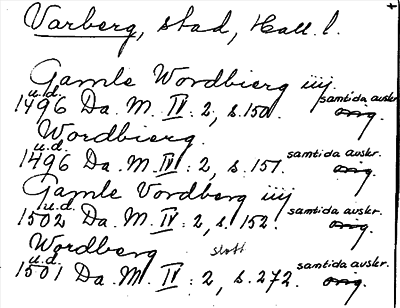 Varberg, stad, Hall. l.
Gamle Wordbierg iiij
u.d. samtida avskr.
1496 Da. M. IV : 2, s. 150. orig.
Wordbierg.
u.d. samtida avskr.
1496 Da. M. IV : 2, s. 151. orig.
Gamle Vordberg iiij
u.d. samtida avskr.
1502 Da. M. IV : 2, s. 152. orig.
Wordberg slott
u.d. samtida avskr.
1501 Da. M. IV : 2, s. 272. orig.